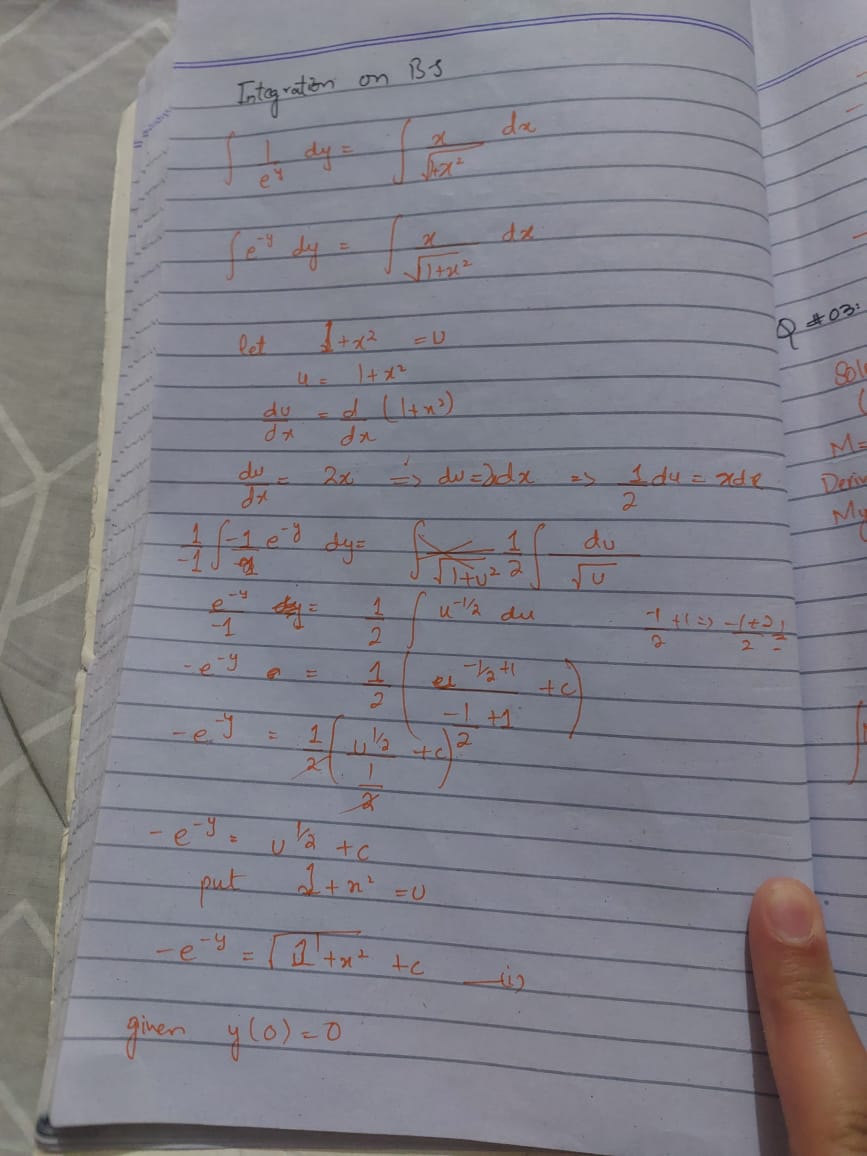 Integration on BS
∫ 1/e^y dy = ∫ x/√1+x² dx
∫ e^-y dy = ∫ x/√1+x² dx
let 1+x² = u
u = 1+x²
du/dx = d/dx (1+x²)
du/dx = 2x => du = 2xdx => 1/2 du = xdx
1/-1 ∫ -1 e^-y dy = 1/2 ∫ du/√u
e^-y/-1 = 1/2 ∫ u^-1/2 du -1/2 +1 => -1+2/2 1/2
-e^-y = 1/2 ( u^-1/2+1 / -1/2 +1 + c )
-e^-y = 1/2 ( u^1/2 / 1/2 + c )
-e^-y = u^1/2 + c
put 1+x² = u
-e^-y = √1+x² + c —(i)
given y(0) = 0
Q # 03:
M=
My